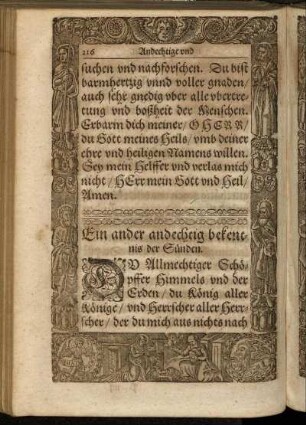 216
Andechtige vnd
suchen vnd nachforschen. Du bist
barmhertzig vnnd voller gnaden/
auch sehr gnedig vber alle vbertre-
tung vnd boßheit der Menschen.
Erbarm dich meiner/ O HERR/
du Gott meines Heils/ vmb deiner
ehre vnd heiligen Namens willen.
Sey mein Helffer vnd verlas mich
nicht/ HErr mein Gott vnd Heil/
Amen.
Ein ander andechtig bekent-
nis der Sünden.
DV Allmechtiger Schö-
pffer Himmels vnd der
Erden/ du König aller
Könige/ vnd Herrscher aller Herr-
scher/ der du mich aus nichts nach